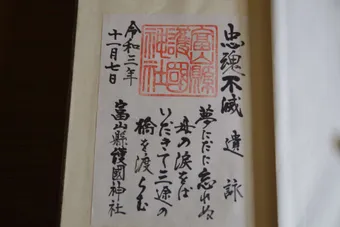 忠魂不滅
遺詠
夢にだに忘れぬ
母の涙をば
いだきて三途の
橋を渡らむ
富山縣護國神社
令和三年
十一月七日
富山縣
護國
神社